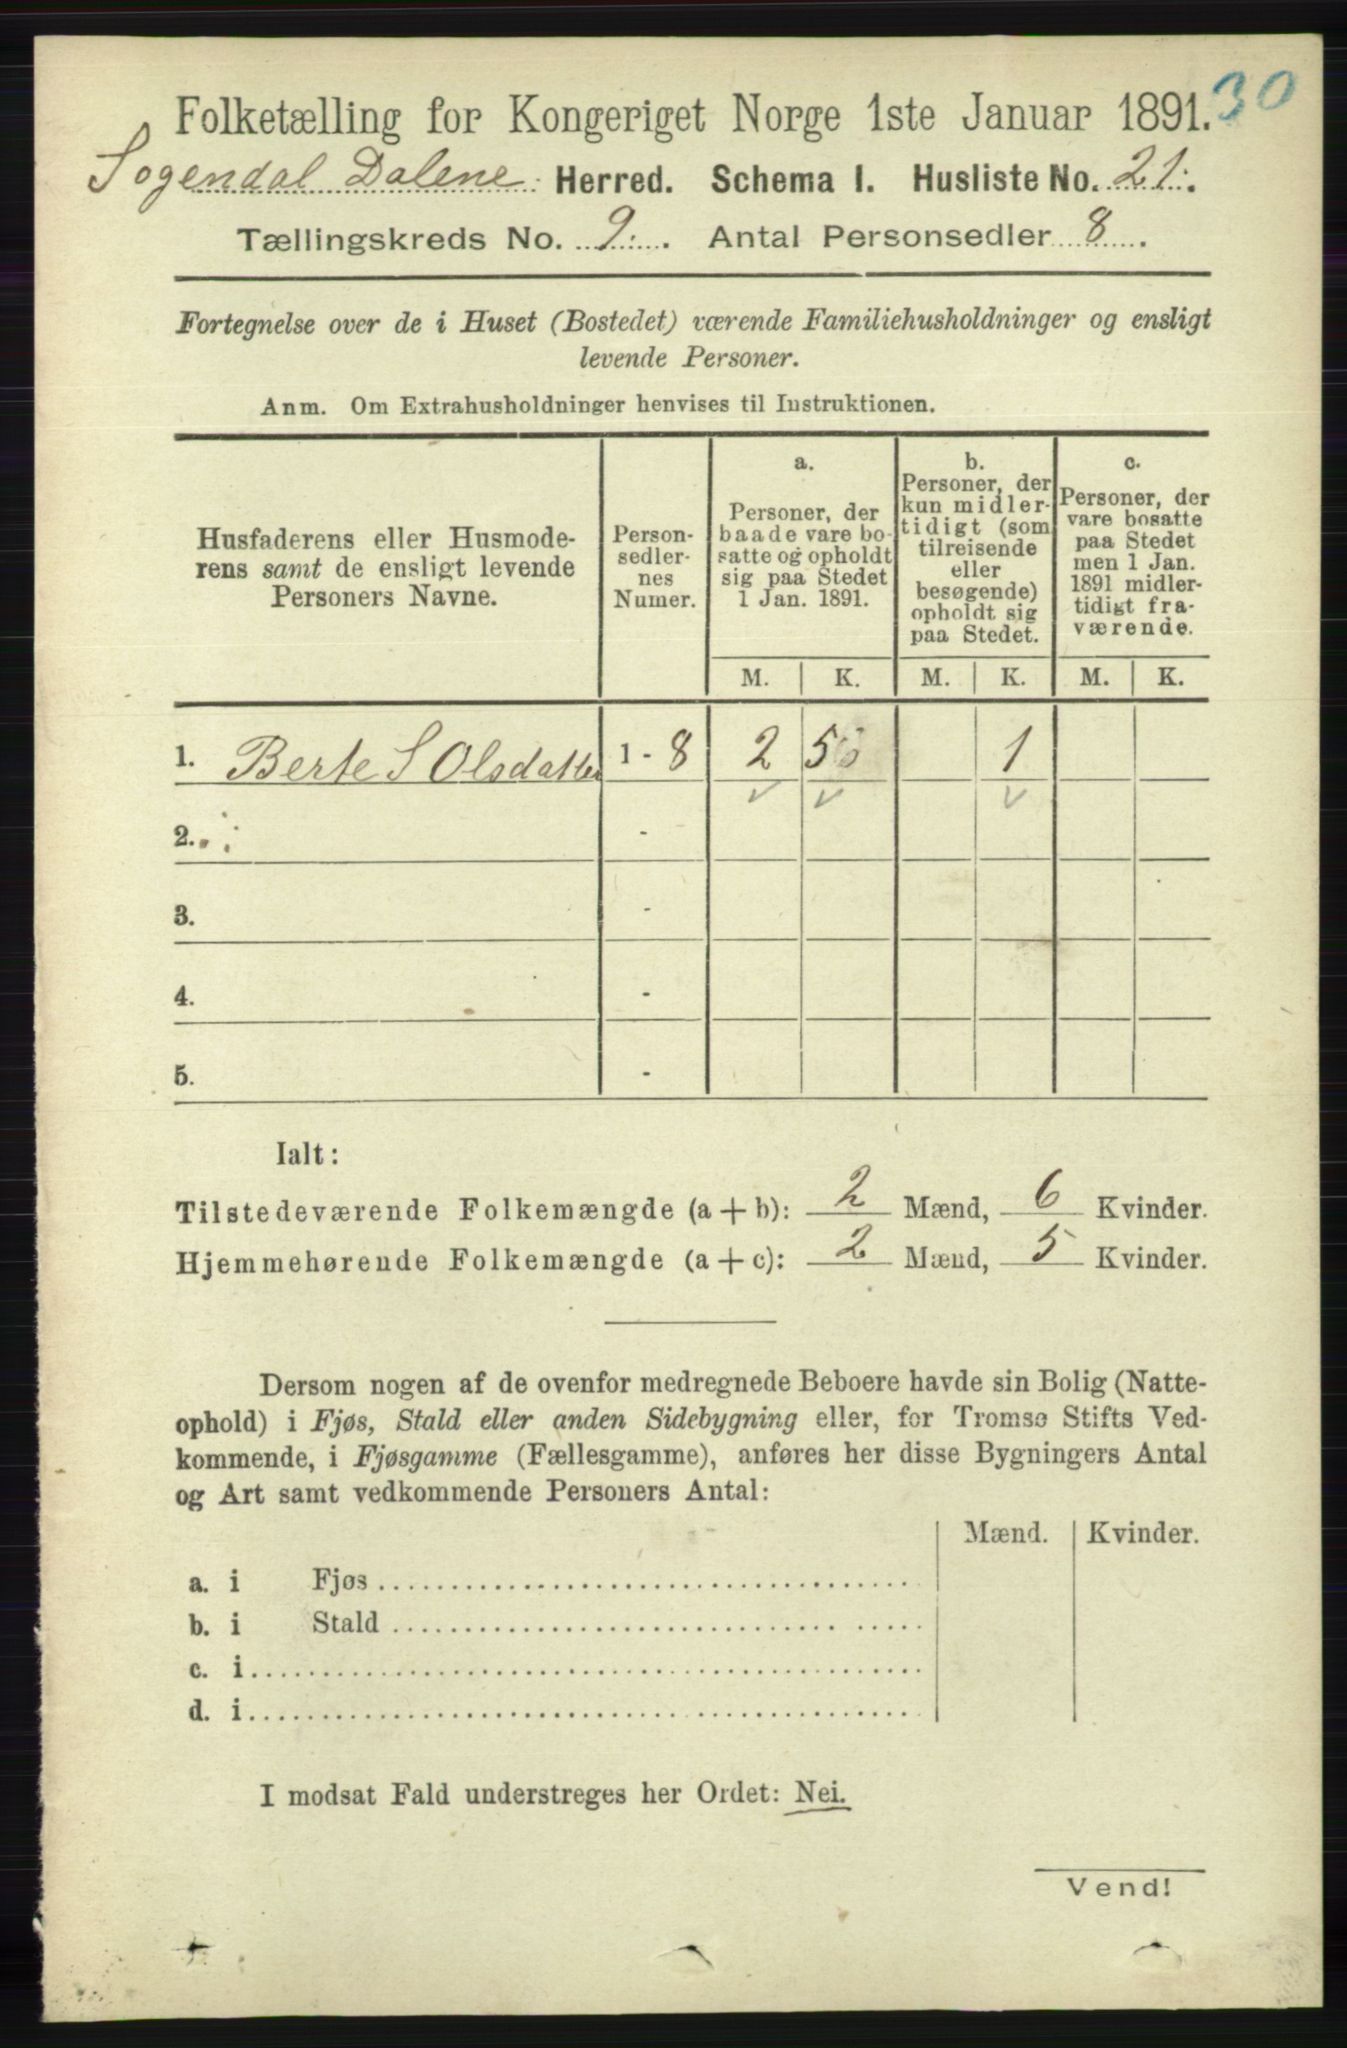 30
Folketælling for Kongeriget Norge 1ste Januar 1891.
Sogendal Dalene Herred. Schema I. Husliste No. 21.
Tællingskreds No. 9. Antal Personsedler 8.
Fortegnelse over de i Huset (Bostedet) værende Familiehusholdninger og ensligt
levende Personer.
Anm. Om Extrahusholdninger henvises til Instruktionen.
Husfaderens eller Husmode-
rens samt de ensligt levende
Personers Navne.
Person-
sedler-
nes
Numer.
a.
Personer, der
baade vare bo-
satte og opholdt
sig paa Stedet
1 Jan. 1891.
b.
Personer, der
kun midler-
tidigt (som
tilreisende
eller
besøgende)
opholdt sig
paa Stedet.
c.
Personer, der
vare bosatte
paa Stedet
men 1 Jan.
1891 midler-
tidigt fra-
værende.
M. K. M. K. M. K.
1. Berte S Olsdatter 1 - 8 2 5 1
2. -
3. -
4. -
5. -
Ialt:
Tilstedeværende Folkemængde (a + b): 2 Mænd, 6 Kvinder.
Hjemmehørende Folkemængde (a + c): 2 Mænd, 5 Kvinder.
Dersom nogen af de ovenfor medregnede Beboere havde sin Bolig (Natte-
ophold) i Fjøs, Stald eller anden Sidebygning eller, for Tromsø Stifts Ved-
kommende, i Fjøsgamme (Fællesgamme), anføres her disse Bygningers Antal
og Art samt vedkommende Personers Antal:
Mænd. Kvinder.
a. i Fjøs
b. i Stald
c. i
d. i
I modsat Fald understreges her Ordet: Nei.
Vend!